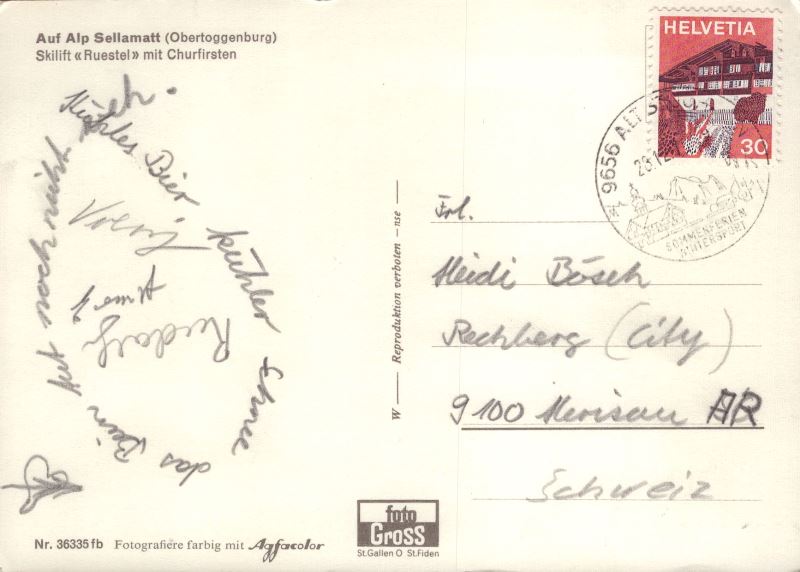 Auf Alp Sellamatt (Obertoggenburg)
Skilift «Ruestel» mit Churfirsten
HELVETIA
30
9656 ALT ST
28.12.
SOMMERFERIEN
WINTERSPORT
Kühles Bier kühler Schnee das Bein tut noch nicht weh.
Rudolf
W — Reproduktion verboten - nse —
Frl.
Heidi Bösch
Rechberg (City)
9100 Herisau AR
Schweiz
foto
Gross
St.Gallen O St.Fiden
Nr. 36335fb Fotografiere farbig mit Agfacolor